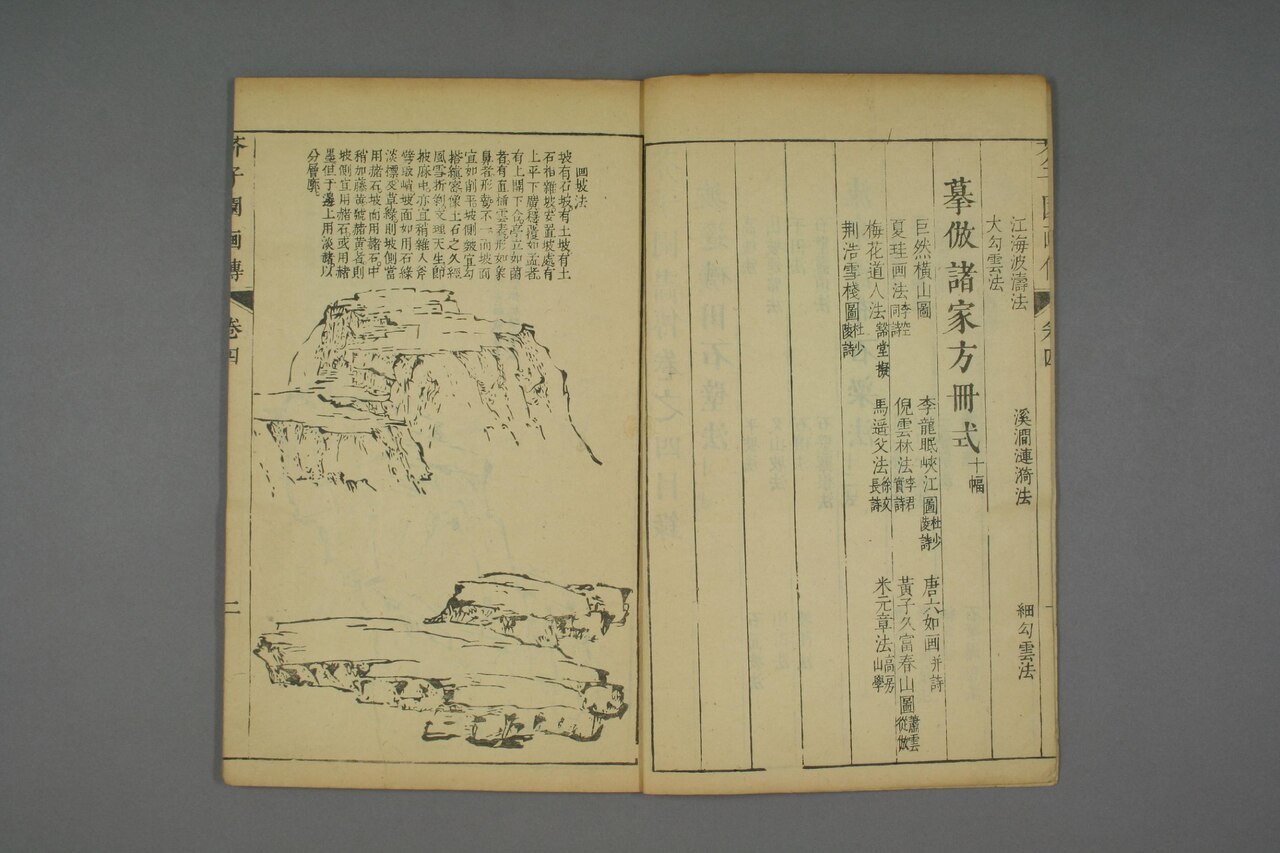 江海波濤法　溪澗漣漪法　細勾雲法
大勾雲法
摹倣諸家方冊式十幅
巨然橫山圖　李龍眠峽江圖杜少陵詩　唐六如画并詩
夏珪画法李空同詩　倪雲林法李君實詩　黃子久富春山圖蕭雲從倣
梅花道人法谿堂擬　馬遥父法徐文長詩　米元章法高房山學
荆浩雪棧圖杜少陵詩
画坡法
坡有石坡有土坡有土
石相雜坡安置坡處有
上平下廣穩覆如盂者
有上開下合亭立如菌
者有直插雲表形如象
鼻者形勢不一而坡面
宜如削平坡側皴宜勾
搭縱密像土石之久經
風雪折剥文理天生即
坡麻皮亦宜稍雜人斧
劈取峭坡面如用石綠
淡標及草綠則坡側當
用赭石坡面用赭石中
稍加藤黃號赭黃者則
坡側宜用赭石或用赭
墨但于邊上用淡赭以
分層廓
芥子園画傳　卷四　二